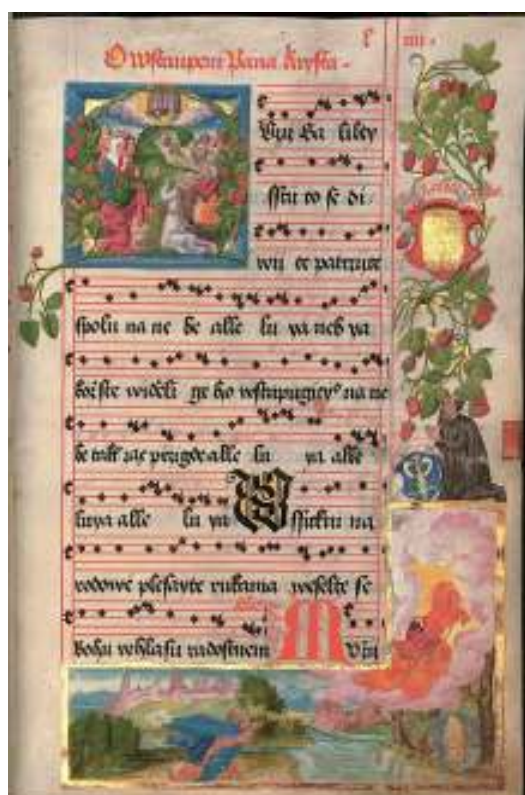 O wstaupeni Pana Krysta
Muzi Ga liley
sstii to se di
wii te patrziite
spolu na ne be alle lu ya neb ya
kozste widěli ge ho wstupugicy° na ne
be tak zas przigde alle lu ya alle
luya alle lu ya Wssickni na
rodowe plesayte rukama weselte se
Bohu w hlasu radostnem M uzii